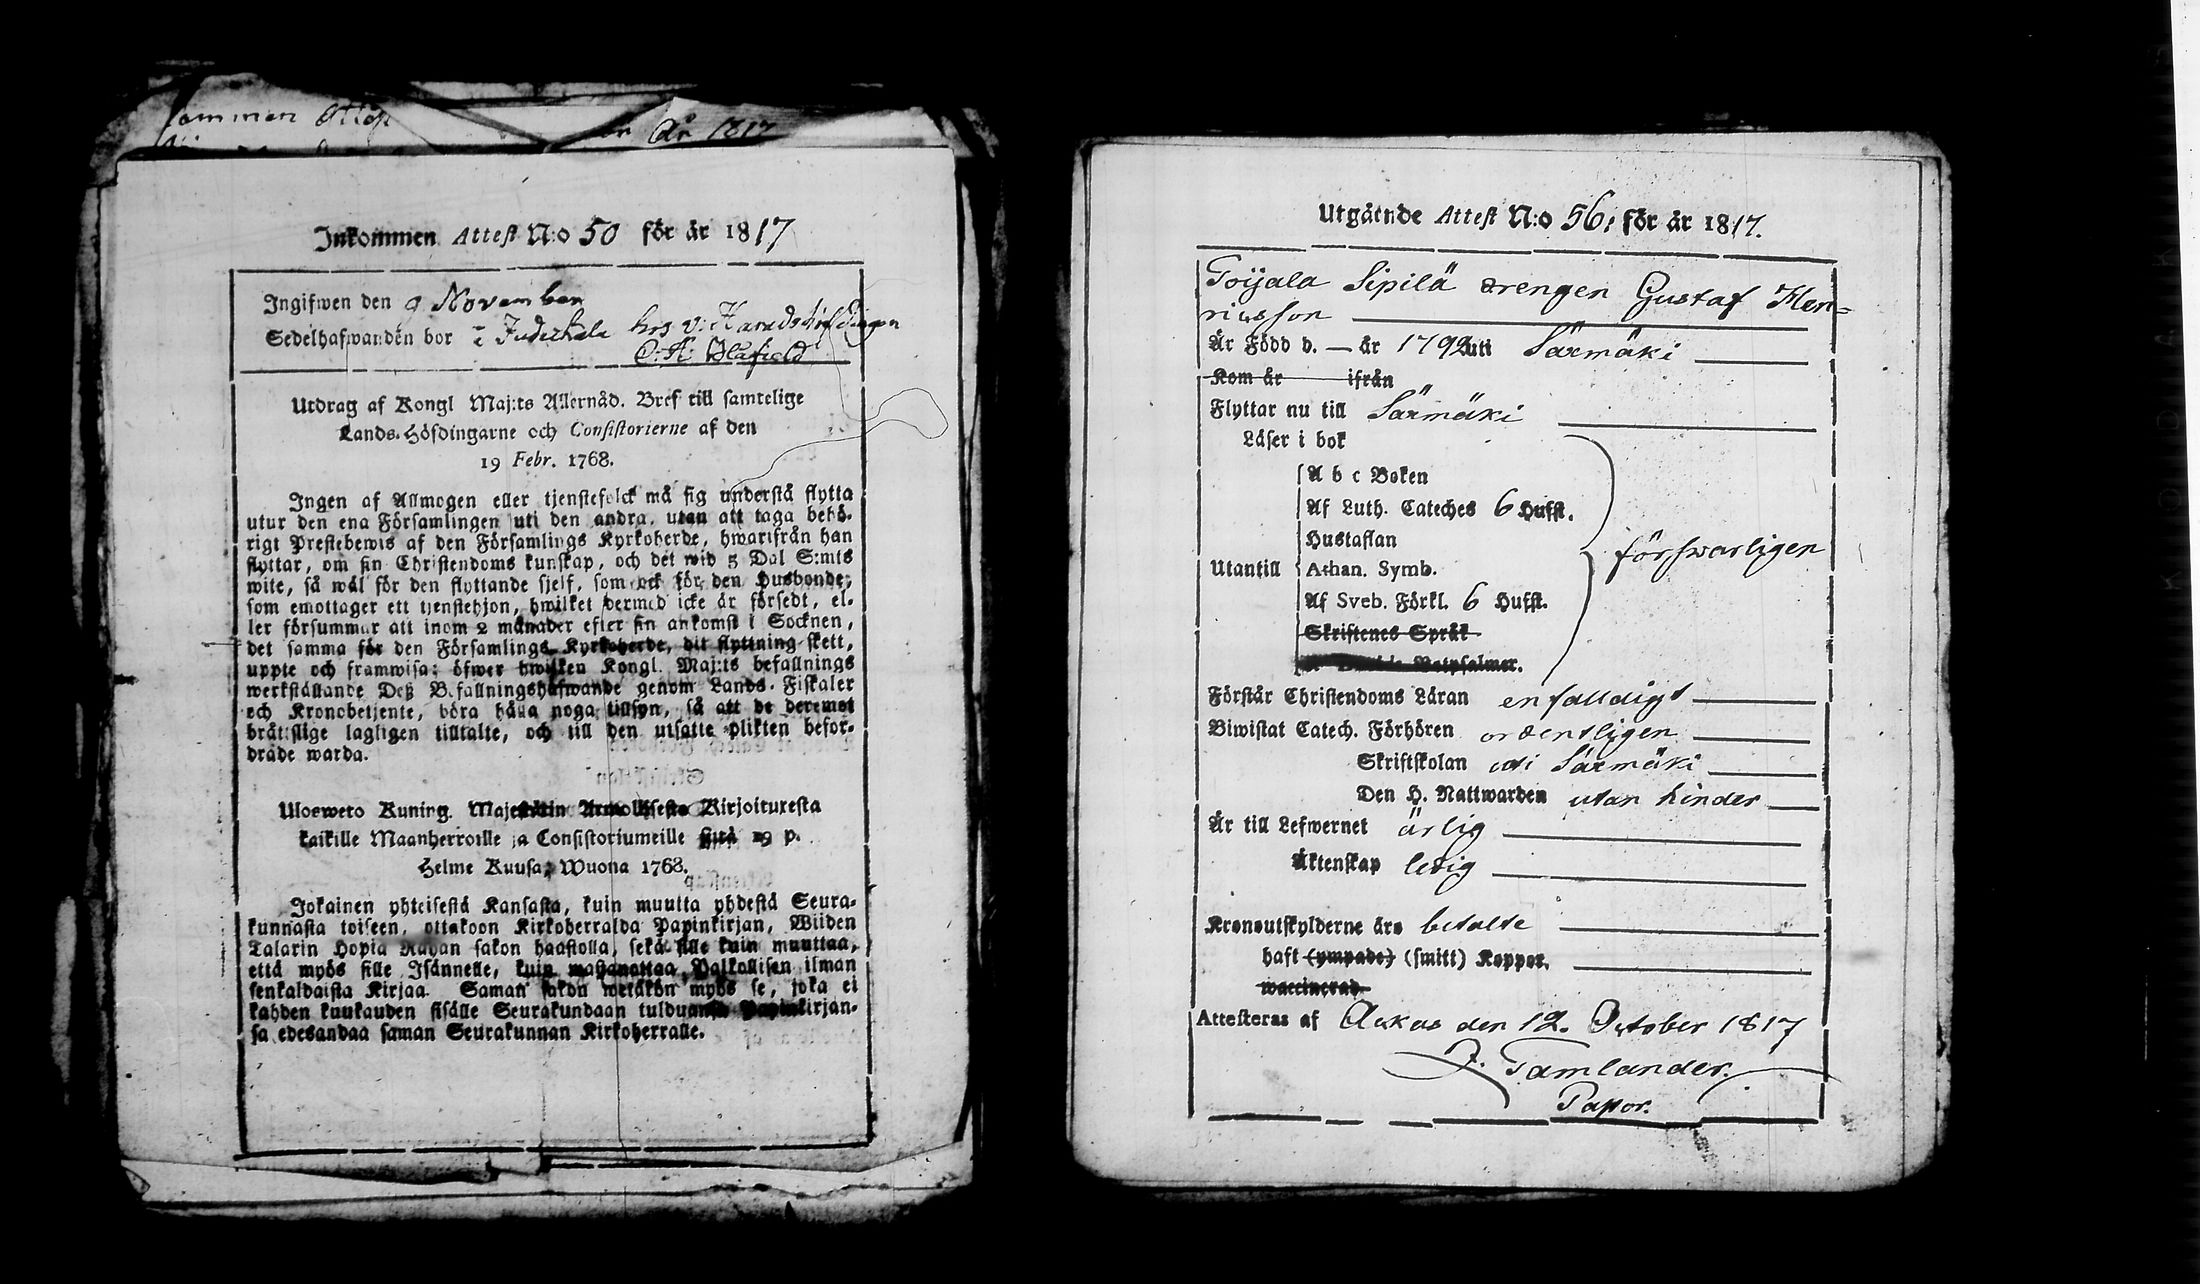 ommen Attest
År 1817
Inkommen Attest N:o 50 för år 1817
Ingifwen den 9 November
Sedelhafwanden bor i Judickala hos v: Haradshöfdingen
Utdrag af Kongl Maj:ts Allernåd. Bref till samtelige
Lands-Höfdingarne och Consistorierne af den
19 Febr. 1768.
Ingen af Allmogen eller tjenstefolck må sig understå flytta
utur den ena Församlingen uti den andra, utan att taga behö-
rigt Prestebewis af den Församlings Kyrkoherde, hwarifrån han
flyttar, om sin Christendoms kunskap, och det wid 5 Dal S:mts
wite, så wäl för den flyttande sjelf, som ock för den Husbonde,
som emottager ett tjenstehjon, hwilket dermed icke är försedt, el-
ler försummar att inom 2 månader efter sin ankomst i Socknen,
det samma för den Församlings Kyrkoherde, dit flyttning skett,
uppte och framwisa; öfwer hwilken Kongl. Maj:ts befallnings
werkställande Deß Befallningshafwande genom Lands-Fiskaler
och Kronobetjente, böra hålla noga tillsyn, så att de deremot
bråttslige lagligen tilltalte, och till den utsatte plikten befor-
dråde warda.
Ulosweto Kuning. Majestätin Armollisesta Kirjoituxesta
kaikille Maanherroille ja Consistoriumeille siitä 19 p.
Helme Kuusa, Wuona 1768.
Jokainen yhteisestä Kansasta, kuin muutta yhdestä Seura-
kunnasta toiseen, ottakoon Kirkoherralda Papinkirjan, Wiiden
Talarin Hopia Rahan sakon haastolla, sekä sille kuin muuttaa,
että myös sille Isännelle, kuin wastanottaa Palkollisen ilman
senkaldaista Kirjaa. Saman sakon wetäkön myös se, joka ei
kahden kuukauden sisälle Seurakundaan tulduansa Papinkirjan-
sa edesandaa saman Seurakunnan Kirkoherralle.
Utgåtnde Attest N:o 56, för år 1817.
Toijala Sipilä drengen Gustaf Hen-
ricsson
Är Född d. — år 1792 uti Säxmäki
Kom år ifrån
Flyttar nu till Säxmäki
Läser i bok
A b c Boken
Af Luth. Cateches 6 Hufst.
Hustaflan
Utantill Athan. Symb. förswarligen
Af Sveb. Förkl. 6 Hufst.
Skriftenes Språk
Botpsalmer.
Förstår Christendoms Läran enfalldigt
Biwistat Catech. Förhören ordentligen
Skriftskolan uti Säxmäki
Den H. Nattwarden utan hinder
Är till Lefwernet ärlig
Äktenskap ledig
Kronoutskylderne äro betalte
haft (ympade) (smitt) Koppor.
waccinerad
Attesteras af Ackas den 12. October 1817
J. Tamlander.
Pastor.